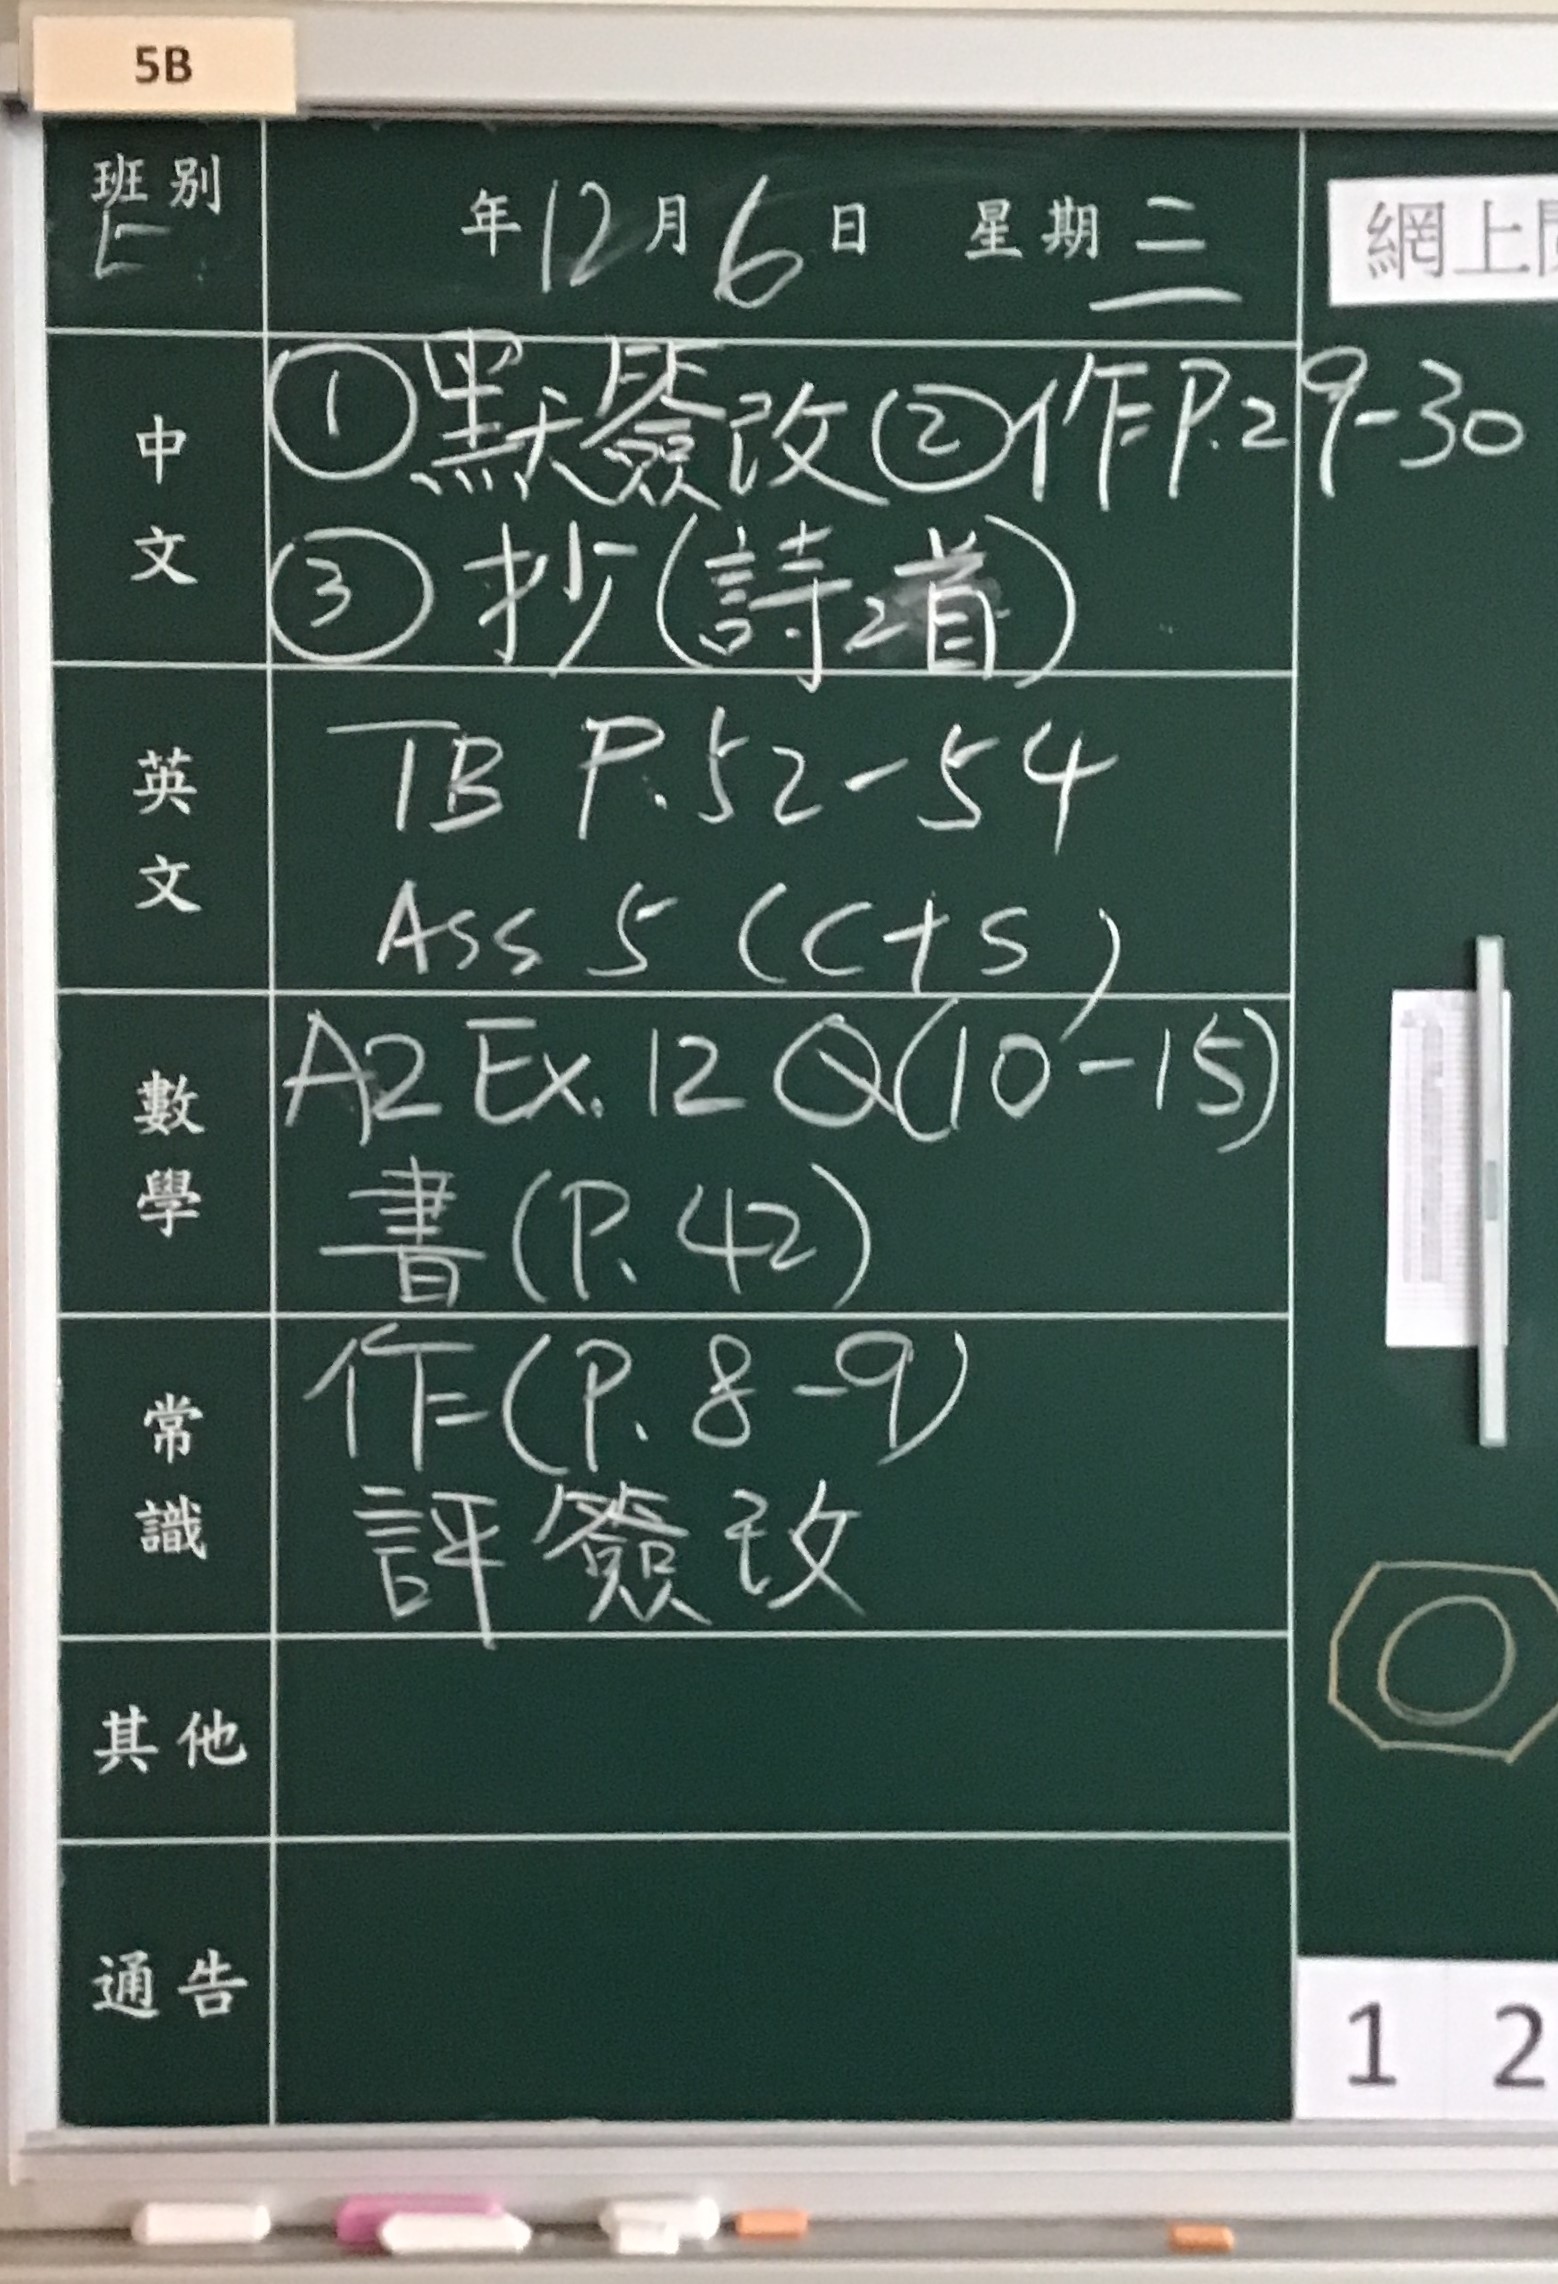 5B
班別
年12月6日 星期三
網上
中文
①默簽改②作P.29-30
③抄(詩2首)
英文
TB P.52-54
Ass 5 (C+S)
數學
A2 Ex.12 Q(10-15)
書(P.42)
常識
作(P.8-9)
評簽改
其他
通告
1 2